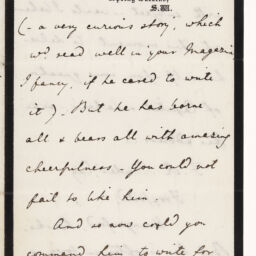 S.W.
(- a very curious story, which
wd. read well in your Magazin
I fancy, if he cared to write
it). But he has borne
all & bears all with amazing
cheerfulness. You could not
fail to like him.
And so now could you
command him to write for